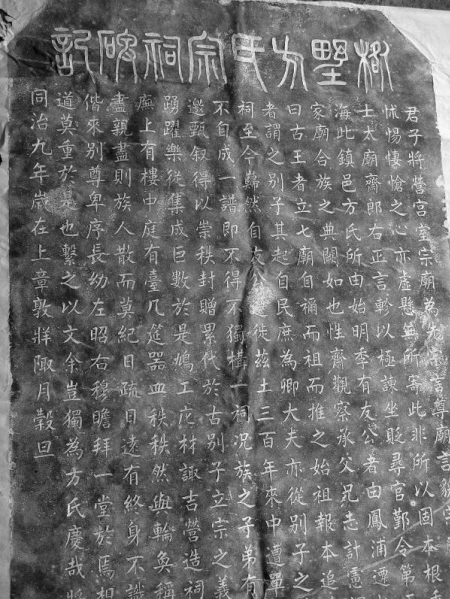 柏墅方氏宗祠碑記
君子將營宮室宗廟為言尊廟言貌宮
怵惕悽愴之心亦虛懸無所寄此非所以固本根
士大廟齋郎右正言軫以極諫坐貶尋官鄞令第
海此鎮邑方氏所由始明季有友公者由鳳浦遷
家廟合族之典闕如也性齋觀察承父兄志計慮
曰古王者立七廟自禰而祖而推之始祖報本追
者謂之別子其起自民庶為卿大夫亦從別子之
祠至今然自友遷徙茲土三百年來中遭單
不自成一譜即不得不獨構一祠況族之子弟有
還甄敘得以崇秩封贈累代於古別子立宗之義
踴躍樂從集成巨數於是鳩工庀材諏吉營造祠
廡上有樓中庭有臺几筵器皿秩秩然與輪奐稱
盡親盡則族人散而莫紀日疏日遠有終身不識
偕來別尊卑序長幼左昭右穆瞻拜一堂於焉相
道莫重於是也繫之以文余豈獨為方氏慶哉將
同治九年歲在上章敦牂陬月穀旦